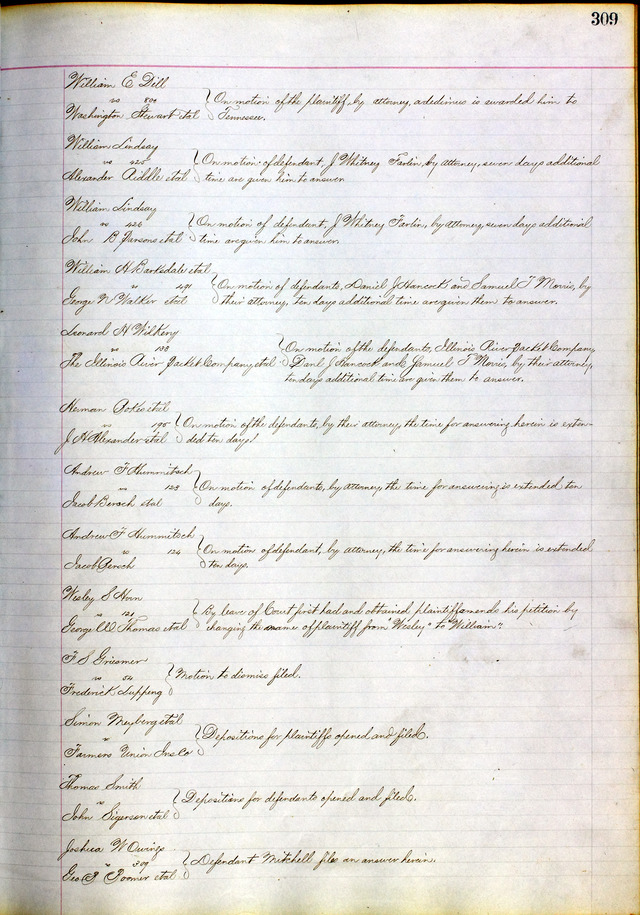 309
William E Dill
vs 800 } On motion of the plaintiff, by attorney, a dedimus is awarded him to
Washington Stewart etal Tennessee.
William Lindsay
vs 425 } On motion of defendant, J Whitney Farlin, by attorney, seven days additional
Alexander Riddle etal time are given him to answer
William Lindsay
vs 426 } On motion of defendant, J Whitney Farlin, by attorney seven days additional
John B Parsons etal time are given him to answer.
William H Barksdale etal
vs 491 } On motion of defendants, Daniel J Hancock and Samuel T Morris, by
George N Walker etal their attorney, ten days additional time are given them to answer.
Leonard H
vs 198 } On motion of the defendants, Illinois River Packet Company,
The Illinois River Packet Company etal Danl J Hancock and Samuel T Morris, by their attorney,
ten days additional time are given them to answer.
Herman etal
vs 190 } On motion of the defendants, by their attorney, the time for answering herein is exten-
J H Alexander etal ded ten days.
Andrew F Hummitsch
vs 123 } On motion of defendants, by attorney, the time for answering is extended ten
Jacob etal days.
Andrew F Hummitsch
vs 124 } On motion of defendant, by attorney, the time for answering herein is extended
Jacob ten days.
Wesley S Horn
vs 121 } By leave of Court first had and obtained plaintiff amends his petition by
George W Thomas etal changing the name of plaintiff from "Wesley" to "William".
F S Griesmer
vs 54 } Motion to dismiss filed.
Frederick
Simon Meyberg etal
vs } Depositions for plaintiffs opened and filed.
Farmers Union Ins Co
Thomas Smith
vs } Depositions for defendants opened and filed.
John Sigerson etal
Joshua W Owings
vs 309 } Defendant Mitchell files an answer herein.
Geo P etal